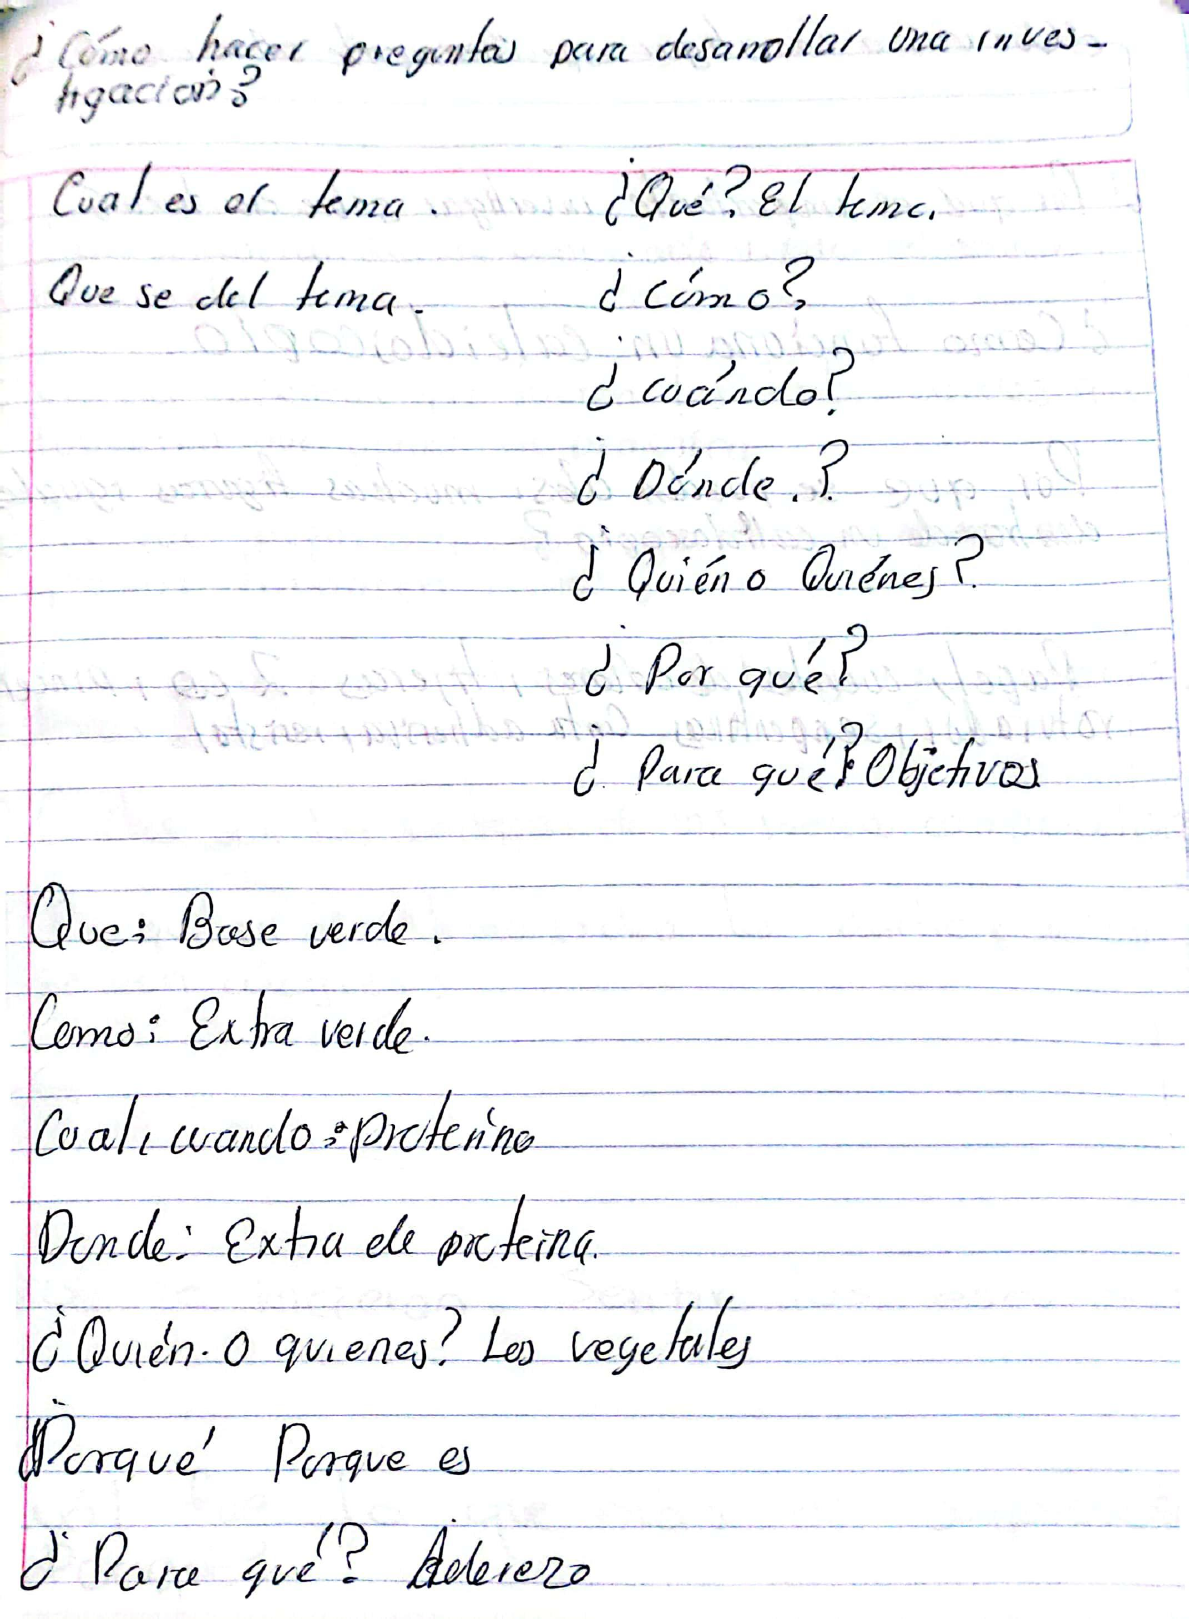 ¿Cómo hacer preguntas para desarrollar una inves-
tigación?
Cual es el tema. ¿Qué? El tema.
Que se del tema. ¿cómo?
¿cuándo?
¿Dónde.?
¿Quién o Quiénes?
¿Por qué?
¿Para qué? Objetivos
Que: Base verde.
Como: Extra verde.
Cual, cuando: proteina
Donde: Extra de proteina.
¿Quién. O quienes? Los vegetales
¿Porqué Porque es
¿Para qué? Aderezo